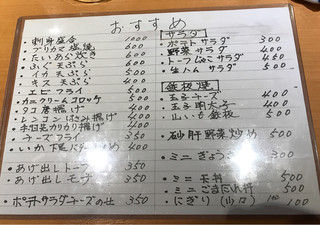 おすすめ
・刺身盛合 1000
・ブリカマ塩焼 600
・たいあら炊き 600
・ふぐ天ぷら 500
・イカ天ぷら 500
・キス天ぷら 500
・エビフライ 500
・カニクリームコロッケ 500
・タコ唐揚げ 400
・レンコンはさみ揚げ 400
・チーズフライ 350
・あげ出しトーフ 350
・あげ出しモチ 350
・ポテトサラダチーズのせ 350
サラダ
・ポテトサラダ 300
・野菜サラダ 400
・生ハムサラダ 500
鉄板焼
・玉子チーズ
・玉子明太子 400
・山いも鉄板 500
・砂肝野菜炒め 500
・ミニぎょうざ 300
・ミニ天丼 500
・ミニごまだれ丼 500
・にぎり 100